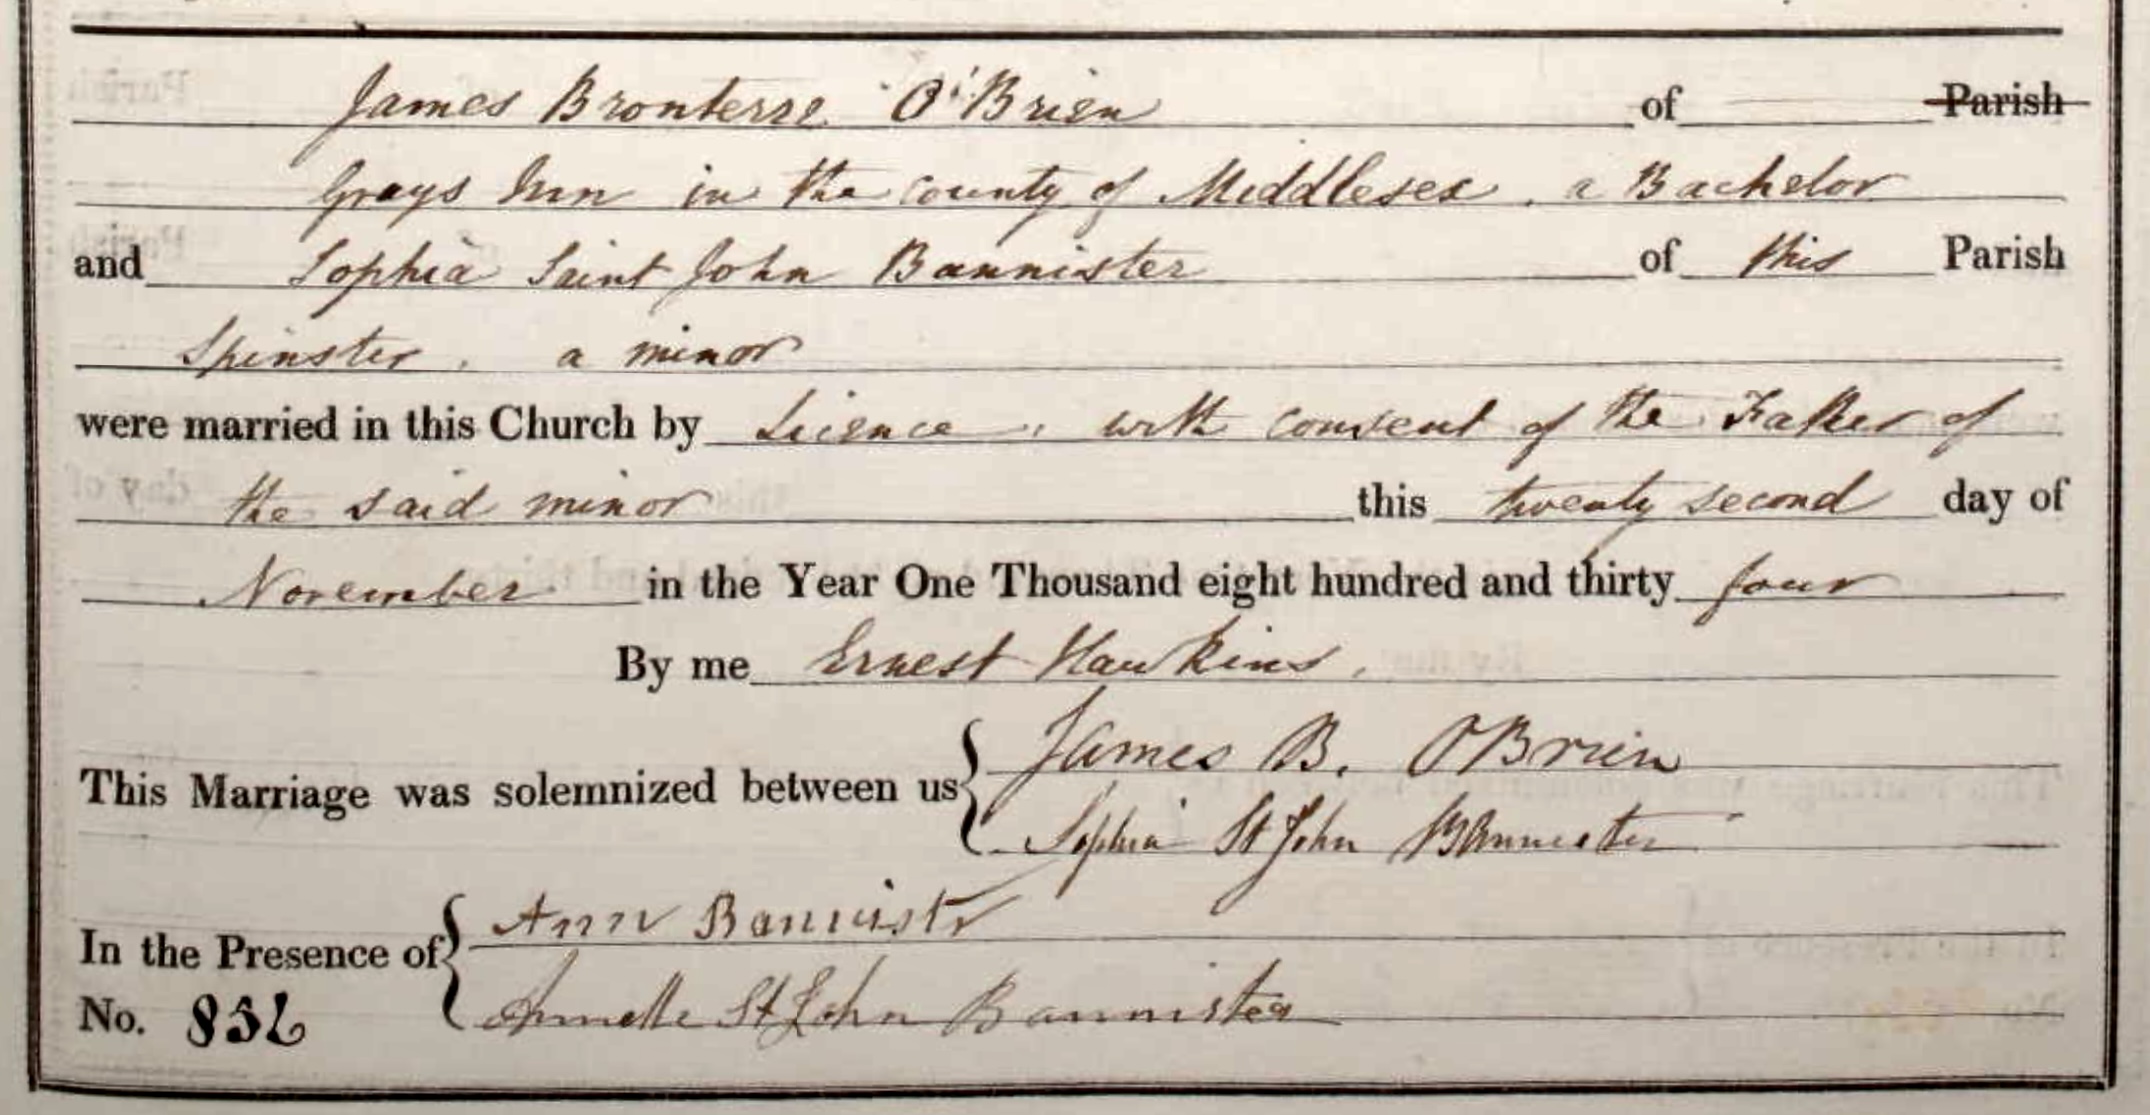 James Bronterre O'Brien of Parish
Grays Inn in the County of Middlesex, a Bachelor
and Sophia Saint John Bannister of this Parish
Spinster, a minor
were married in this Church by Licence, with consent of the Father of
the said minor this twenty second day of
November in the Year One Thousand eight hundred and thirty four
By me Ernest Hawkins.
This Marriage was solemnized between us James B. O'Brien
Sophia St John Bannister
In the Presence of Ann Bannister
Annette St John Bannister
No. 836